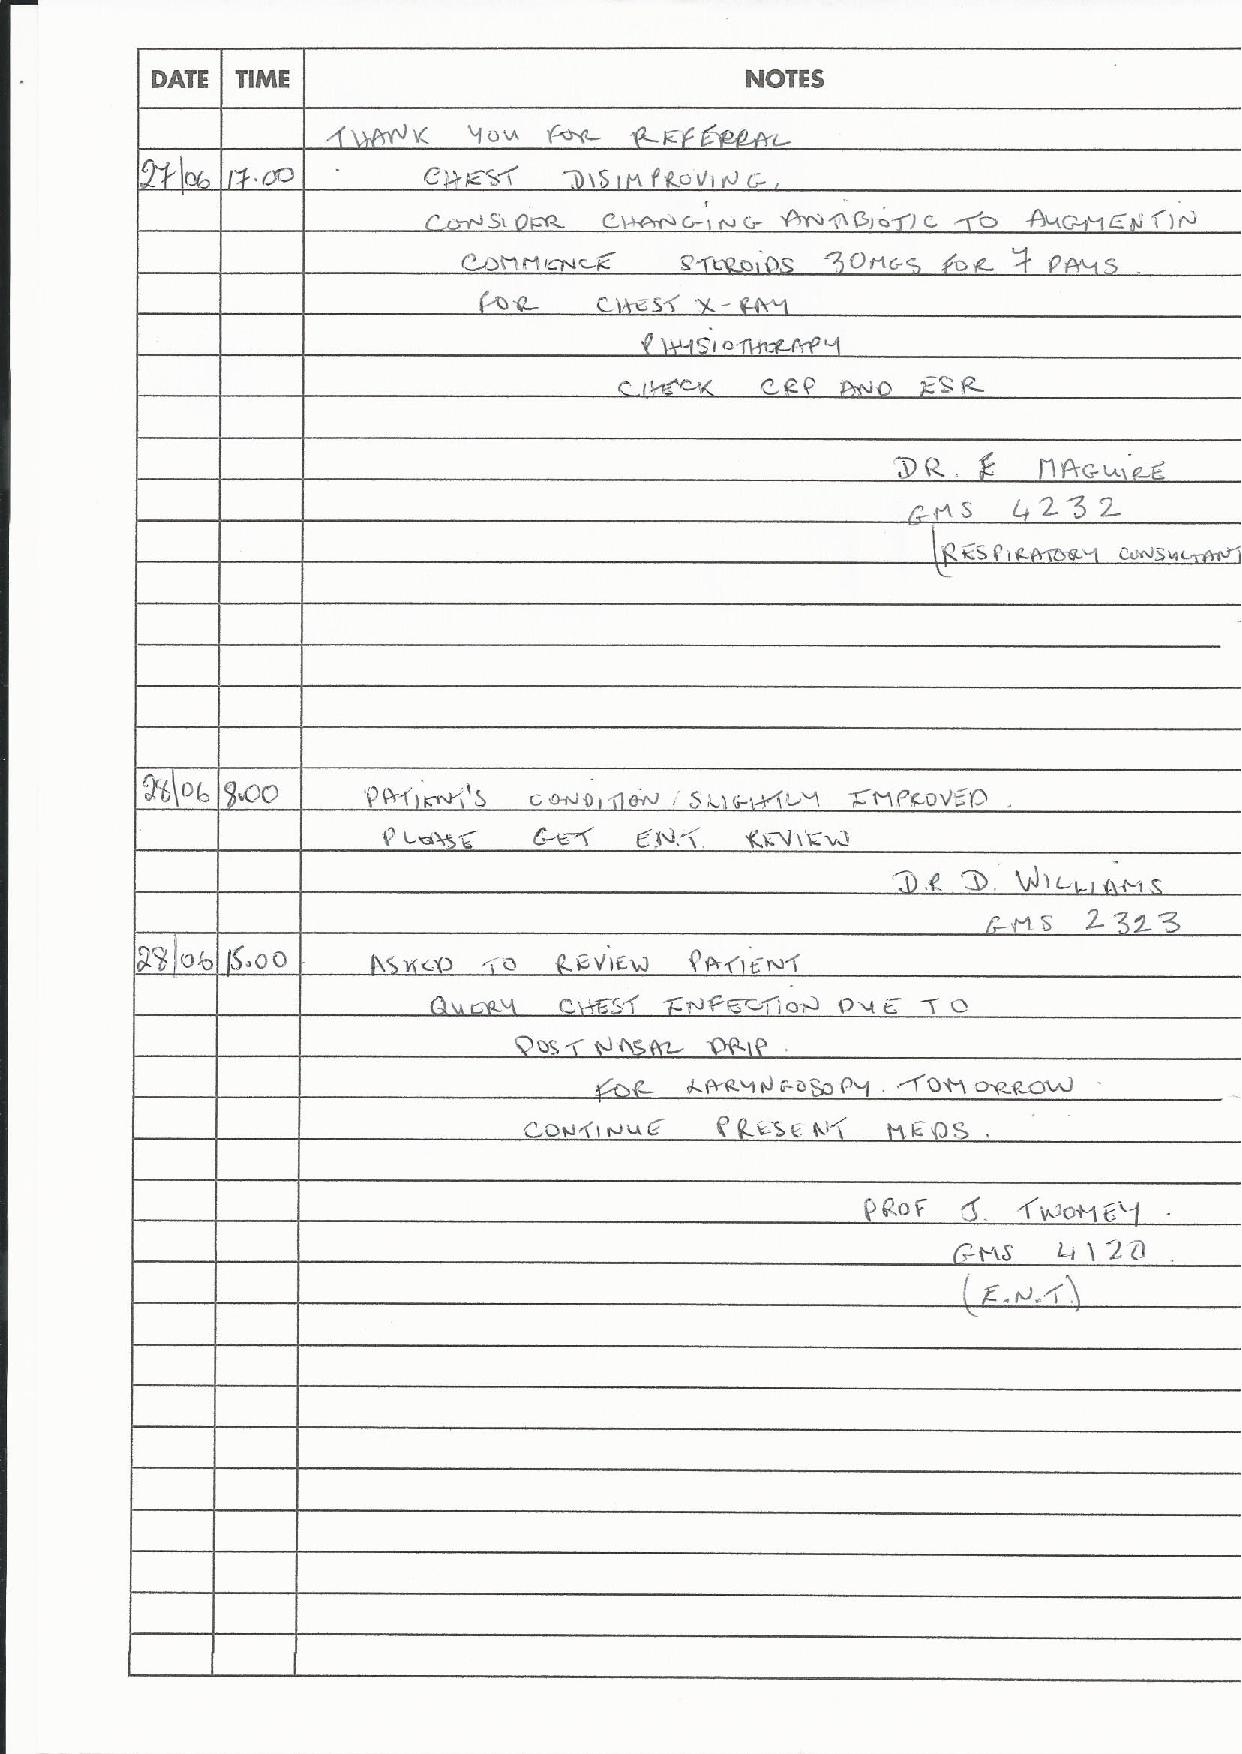 DATE TIME NOTES
THANK YOU FOR REFERRAL
27/06 17.00 CHEST DISIMPROVING.
CONSIDER CHANGING ANTIBIOTIC TO AUGMENTIN
COMMENCE STEROIDS 30MGS FOR 7 DAYS
FOR CHEST X-RAY
PHYSIOTHERAPY
CHECK CRP AND ESR
DR. E MAGUIRE
GMS 4232
(RESPIRATORY CONSULTANT
28/06 8.00 PATIENT'S CONDITION SLIGHTLY IMPROVED.
PLEASE GET E.N.T. REVIEW
DR D. WILLIAMS
GMS 2323
28/06 15.00 ASKED TO REVIEW PATIENT
QUERY CHEST INFECTION DUE TO
POST NASAL DRIP.
FOR LARYNGOSOPY. TOMORROW
CONTINUE PRESENT MEDS.
PROF J. TWOMEY.
GMS 4120.
(E.N.T.)